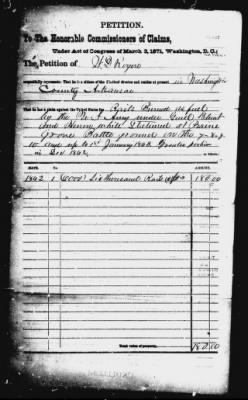 PETITION.
To the Honorable Commissioners of Claims,
Under Act of Congress of March 3, 1871, Washington, D. C.:
The Petition of W D Rogers
respectfully represents: that he is a citizen of the United States and resides at present, in Washington
County Arkansas
that he has a claim against the United States for Rails Burned as fuel
by the U. S. Army under Genl Blunt
and Herron while Stationed at Prairie
Grove Battle ground on the
and up to 1st January 1863
in Dec 1862
DATE.
VALUE.
1862 1 6000 Six thousand Rails 180.00
Total value of property, 180.00